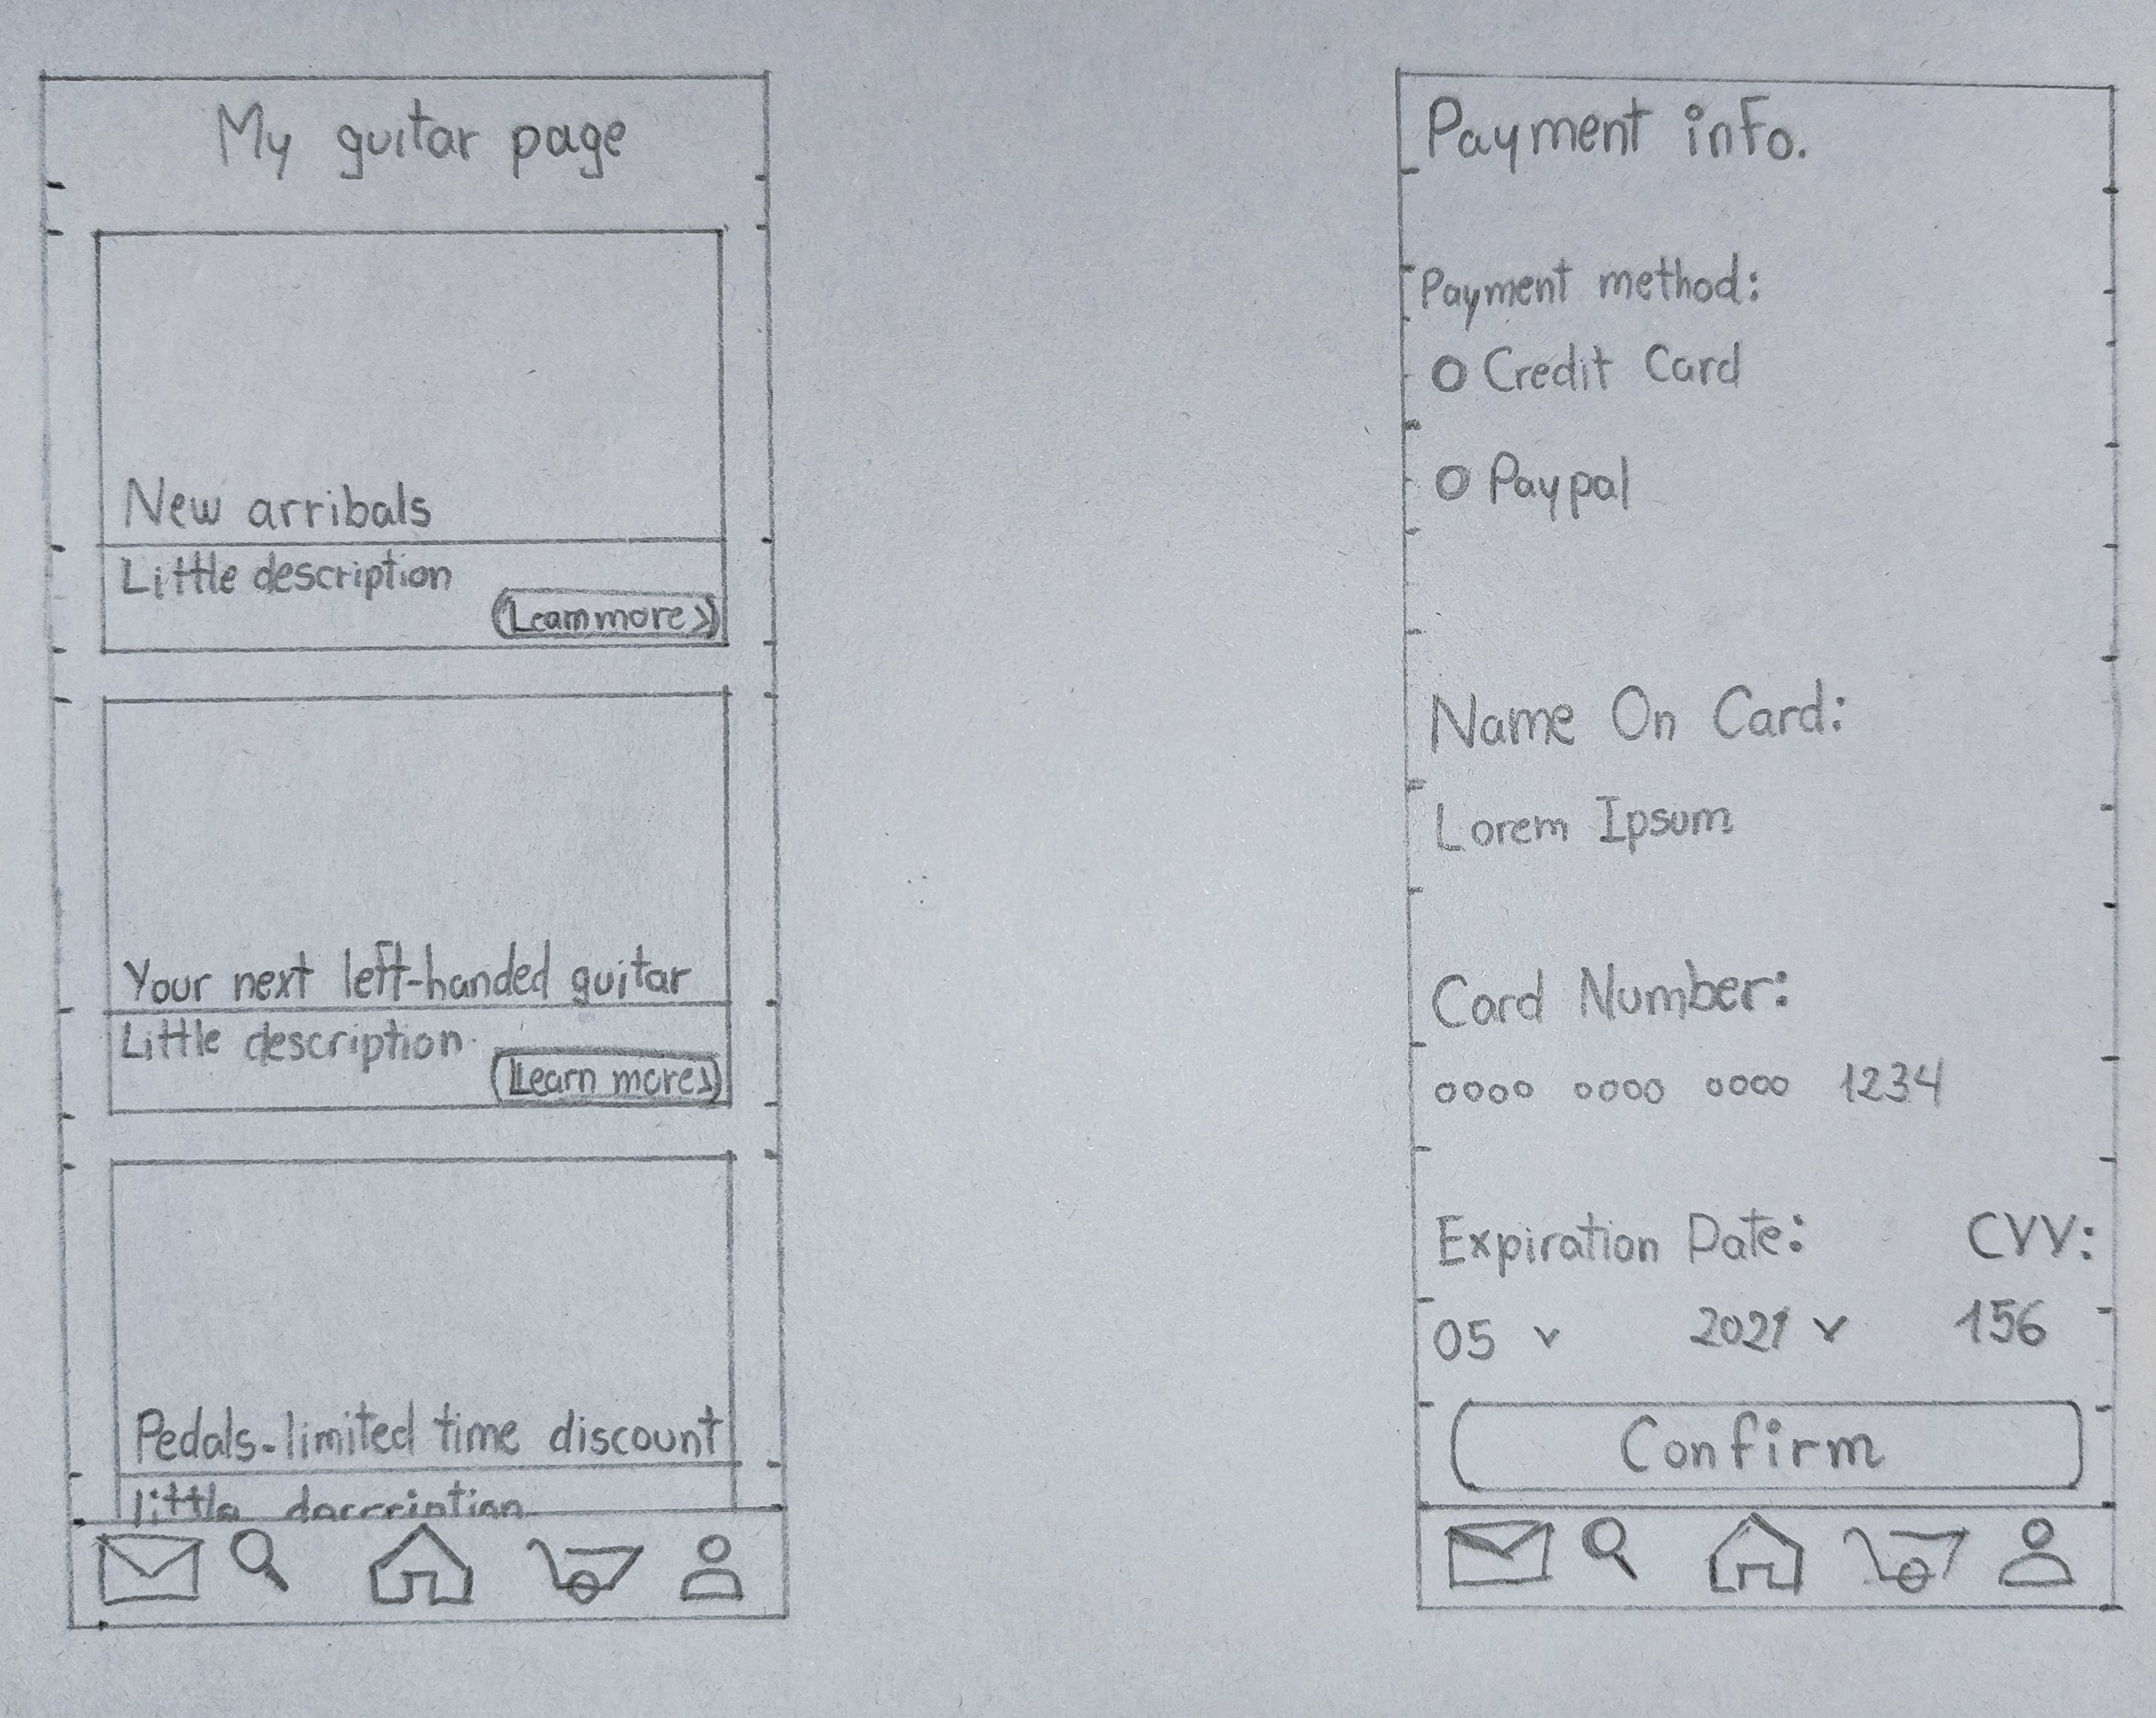 My guitar page
New arribals
Little description
Learn more >
Your next left-handed guitar
Little description
Learn more >
Pedals-limited time discount
little description
Payment info.
Payment method:
O Credit Card
O Paypal
Name On Card:
Lorem Ipsum
Card Number:
oooo oooo oooo 1234
Expiration Date: CVV:
05 v 2021 v 156
Confirm